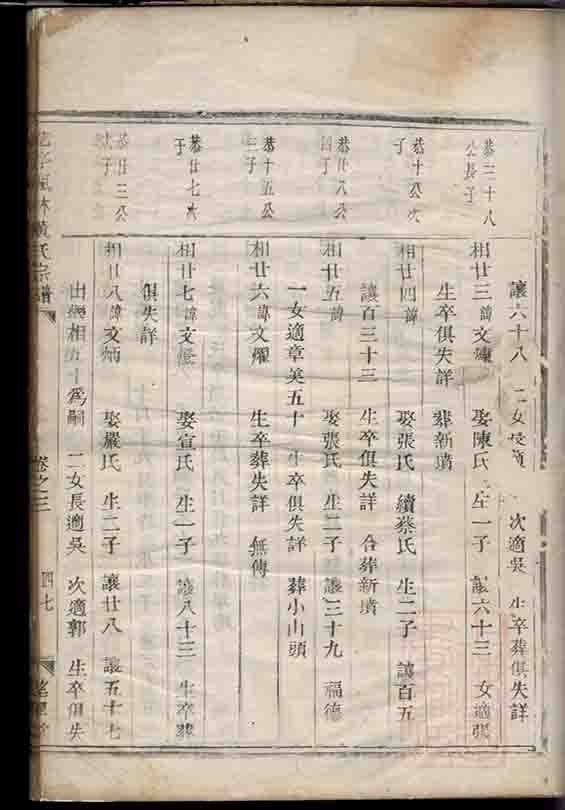 讓六十八 二女長適 次適吳 生卒葬俱失詳
恭二十八公長子
相廿三諱文 娶陳氏 生一子 讓六十三 女適張
生卒俱失詳 葬新墳
恭十公次子
相廿四諱 娶張氏 續蔡氏 生二子 讓百五
讓百三十三 生卒俱失詳 合葬新墳
恭廿八公四子
相廿五諱 娶張氏 生二子 讓三十九 福德
一女適章英五十 生卒俱失詳 葬小山頭
恭十五公三子
相廿六諱文燿 生卒葬失詳 無傳
恭廿七公子
相廿七諱文 娶宣氏 生一子 讓八十三 生卒葬
俱失詳
恭廿三公 子
相廿八諱文炳 娶嚴氏 生二子 讓廿八 讓五十七
出繼相五十爲嗣 二女長適吳 次適郭 生卒俱失
黃氏宗譜 卷之三 四七